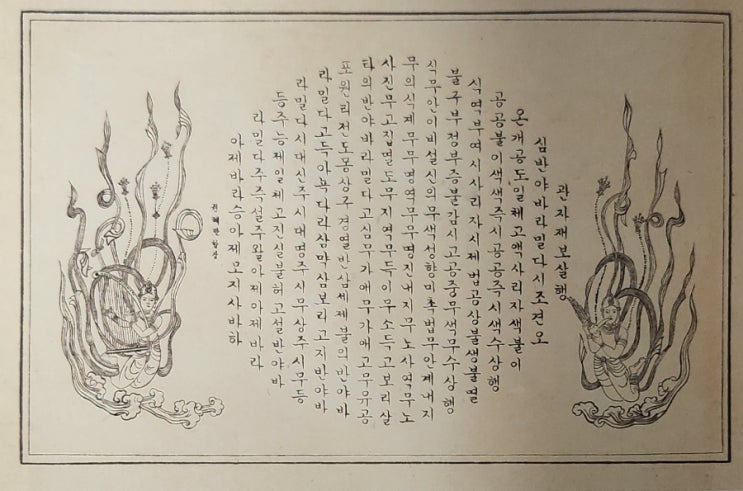 관자재보살행
심반야바라밀다시조견오
온개공도일체고액사리자색불이
공공불이색색즉시공공즉시색수상행
식역부여시사리자시제법공상불생불멸
불구부정부증불감시고공중무색무수상행
식무안이비설신의무색성향미촉법무안계내지
무의식계무무명역무무명진내지무노사역무노
사진무고집멸도무지역무득이무소득고보리살
타의반야바라밀다고심무가애무가애고무유공
포원리전도몽상구경열반삼세제불의반야바
라밀다고득아뇩다라삼막삼보리고지반야바
라밀다시대신주시대명주시무상주시무등
등주능제일체고진실불허고설반야바
라밀다주즉설주왈아제아제바라
아제바라승아제모지사바하